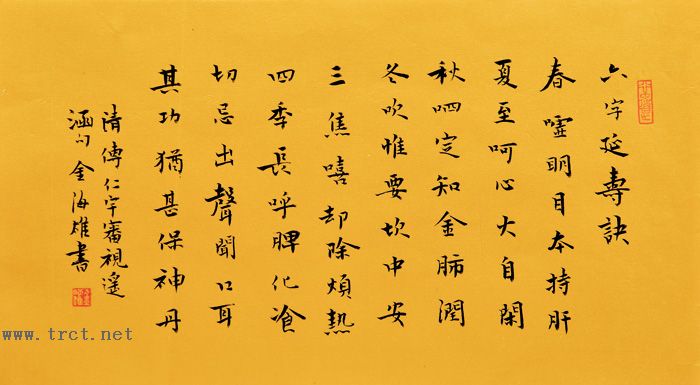 六字延壽訣
春噓明目本持肝
夏至呵心火自閑
秋呬定知金肺潤
冬吹惟要坎中安
三焦嘻却除煩熱
四季長呼脾化飡
切忌出聲聞口耳
其功猶甚保神丹
清傳仁宇審視遙
涵句金海雄書
www.trct.net